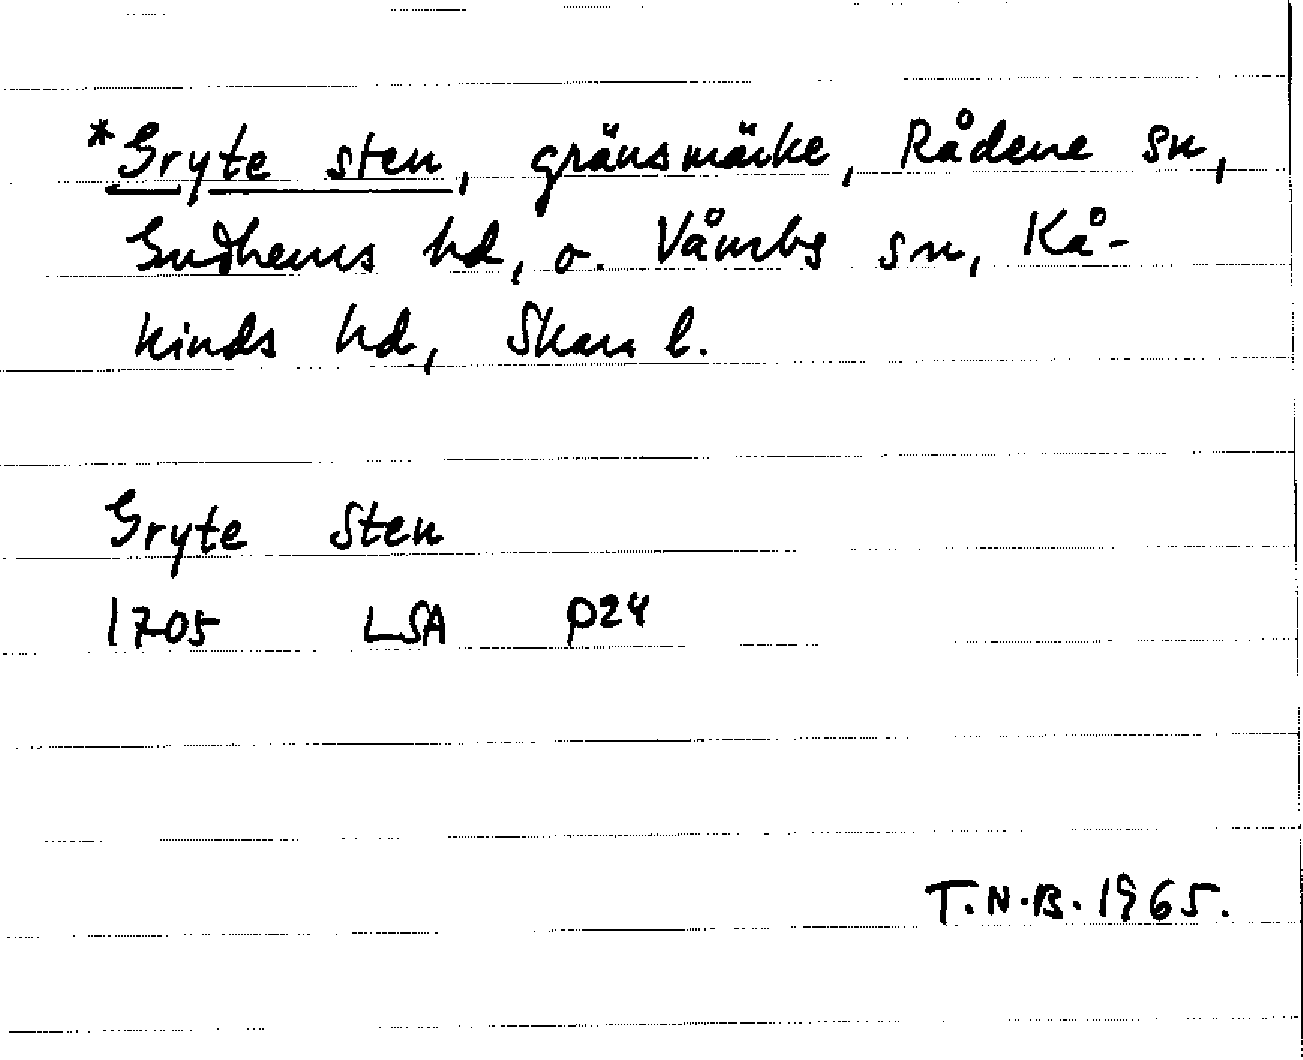 *Gryte sten, gränsmärke, Rådene sn,
Gudhems hd, o. Våmbs sn, Kå-
kinds hd, Skar. l.
Gryte Sten
1705 LSA P24
T.N.B. 1965.